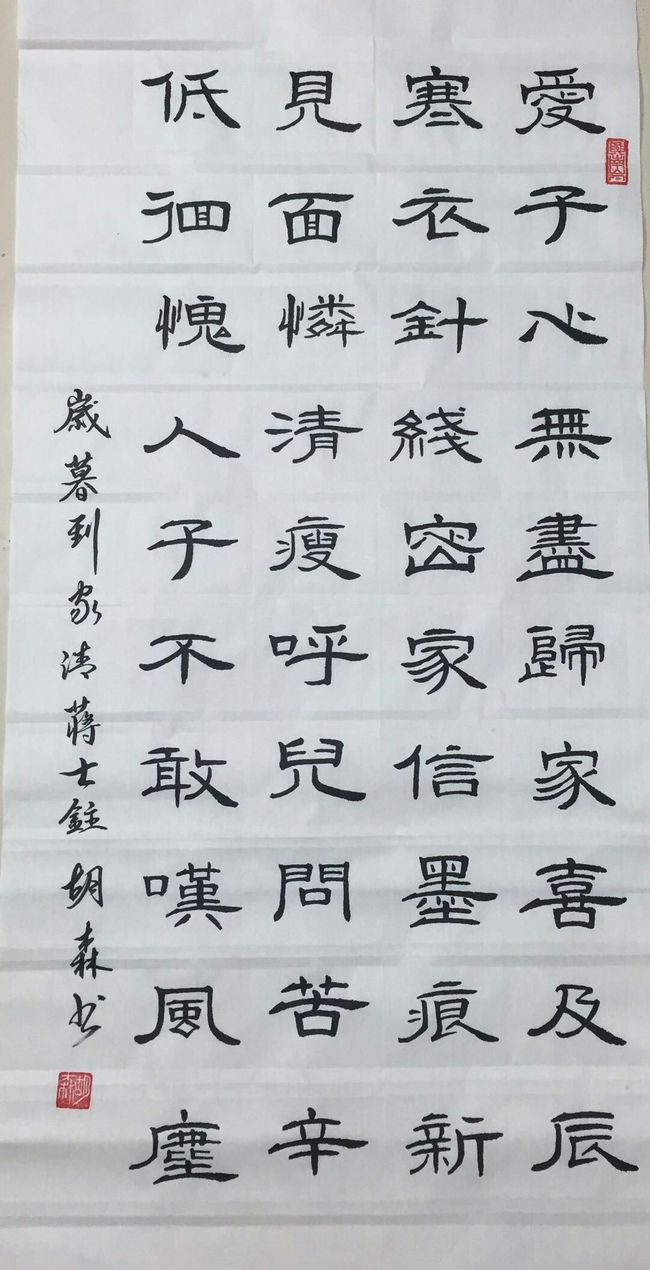 愛子心無盡歸家喜及辰
寒衣針綫密家信墨痕新
見面憐清瘦呼兒問苦辛
低徊愧人子不敢嘆風塵
歲暮到家清蔣士銓胡森书